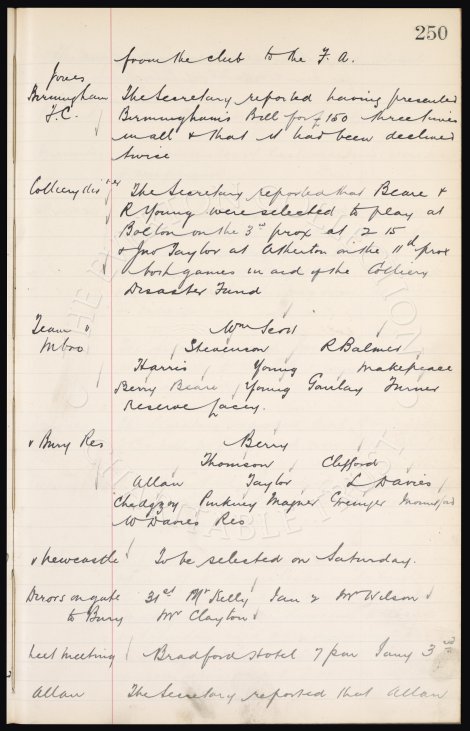 250
from the club to the F. A.
Jones
Birmingham
F.C.
The Secretary reported having presented
Birmingham's Bill for £150 three times
in all & that it had been declined
twice
Colliery dis ter
The Secretary reported that Beare &
R Young were selected to play at
Bolton on the 3rd prox at 2 15
& Jno Taylor at Atherton on the 11th prox
both games in aid of the Colliery
Disaster Fund
Team v
Mbro
Wm Scott
Stevenson R Balmer
Harris Young Makepeace
Berry Beare Young Gourlay Turner
Reserve Lacey.
v Bury Res
Berry
Thomson Clifford
Allan Taylor L Davies
Chedgzoy Pinkney Magner Grainger Mountford
W Davies Res
v Newcastle To be selected on Saturday.
Dirors on gate 31st Mr Kelly Jan 2 Mr Wilson
to Bury Mr Clayton
Next Meeting Bradford Hotel 7 pm Jany 3rd
Allan The Secretary reported that Allan